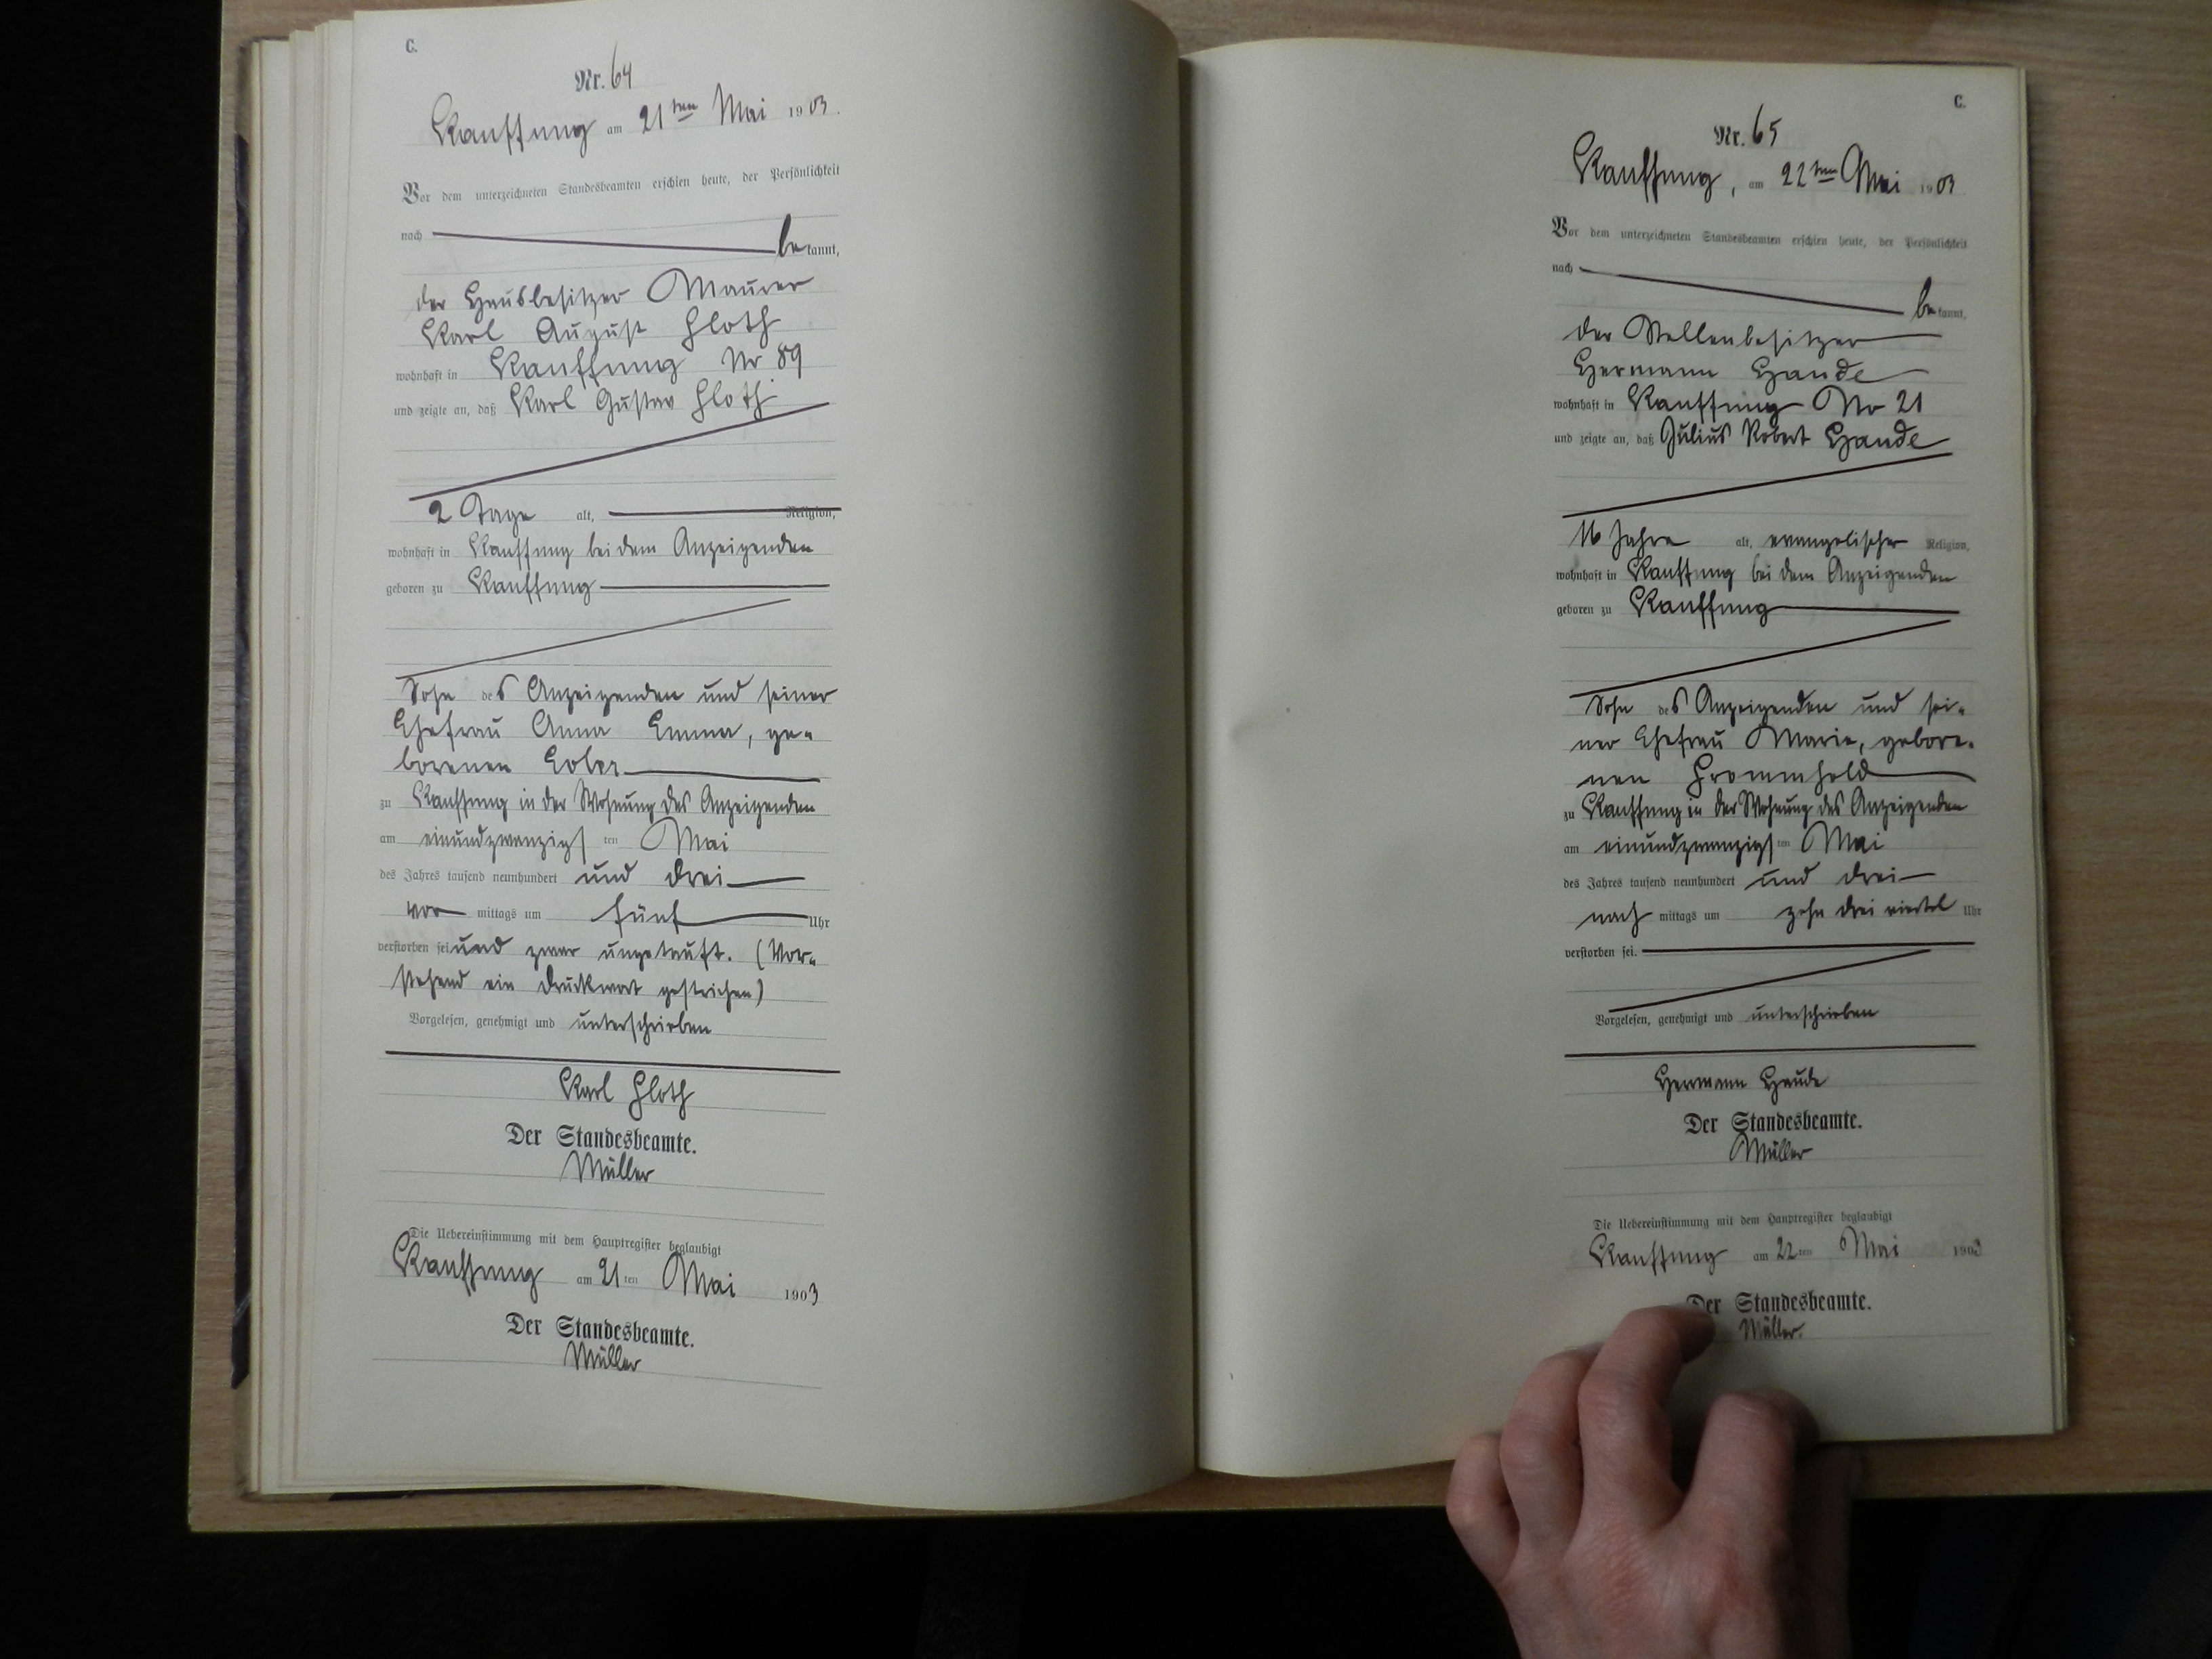 C.
Nr. 64
Kauffung am 21ten Mai 1903.
Vor dem unterzeichneten Standesbeamten erschien heute, der Persönlichkeit
nach bekannt,
der Hausbesitzer Maurer
Karl August Floth
wohnhaft in Kauffung Nr 89
und zeigte an, daß Karl Gustav Floth
2 Tage alt, Religion,
wohnhaft in Kauffung bei dem Anzeigenden
geboren zu Kauffung
Sohn des Anzeigenden und seiner
Ehefrau Anna Emma, ge-
borenen
zu Kauffung in der Wohnung des Anzeigenden
am einundzwanzigsten Mai
des Jahres tausend neunhundert und drei
vor mittags um fünf Uhr
verstorben sei und zwar ungetauft. (Vor-
stehend ein Druckwort gestrichen)
Vorgelesen, genehmigt und unterschrieben
Karl Floth
Der Standesbeamte.
Müller
Die Uebereinstimmung mit dem Hauptregister beglaubigt
Kauffung am 21ten Mai 1903
Der Standesbeamte.
Müller
C.
Nr. 65
Kauffung, am 22ten Mai 1903
Vor dem unterzeichneten Standesbeamten erschien heute, der Persönlichkeit
nach bekannt,
der Stellenbesitzer
Hermann Haude
wohnhaft in Kauffung No 21
und zeigte an, daß Julius Robert Haude
16 Jahre alt, evangelischer Religion,
wohnhaft in Kauffung bei dem Anzeigenden
geboren zu Kauffung
Sohn des Anzeigenden und sei-
ner Ehefrau Marie, gebore-
nen Frommhold
zu Kauffung in der Wohnung des Anzeigenden
am einundzwanzigsten Mai
des Jahres tausend neunhundert und drei
nach mittags um zehn drei viertel Uhr
verstorben sei.
Vorgelesen, genehmigt und unterschrieben
Hermann Haude
Der Standesbeamte.
Müller
Die Uebereinstimmung mit dem Hauptregister beglaubigt
Kauffung am 22ten Mai 1903
Der Standesbeamte.
Müller.